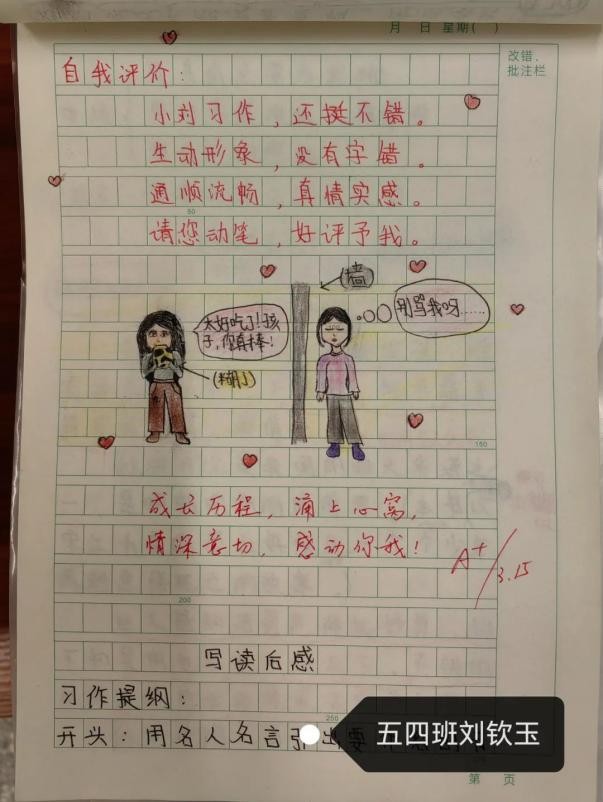 月 日 星期( )
改错、
批注栏
自我评价：
小刘习作，还挺不错。
生动形象，没有字错。
通顺流畅，真情实感。
50
请您动笔，好评予我。
墙
太好吃了!孩
子,你真棒!
(糊了)
别骂我呀……
150
成长历程，涌上心窝，
情深意切，感动你我！
A+
3.15
200
写读后感
习作提纲：
250
开头：用名人名言引出要
五四班刘钦玉
第 页